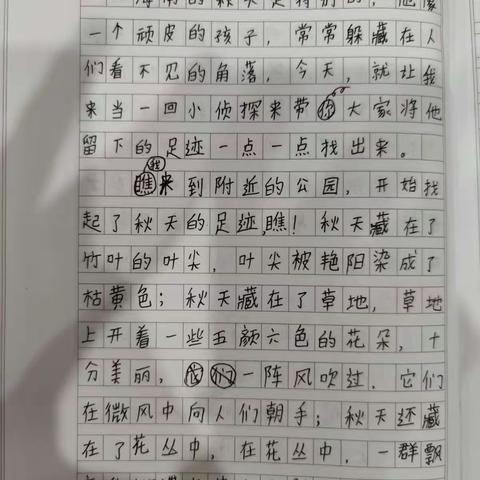 海南的秋天是特别的，他像
一个顽皮的孩子，常常躲藏在人
们看不见的角落，今天，就让我
来当一回小侦探来带 大家将他
留下的足迹一点一点找出来。
我
瞧来到附近的公园，开始找
起了秋天的足迹，瞧！秋天藏在了
竹叶的叶尖，叶尖被艳阳染成了
枯黄色；秋天藏在了草地，草地
上开着一些五颜六色的花朵，十
分美丽， 们一阵风吹过，它们
在微风中向人们朝手；秋天还藏
在了花丛中，在花丛中，一群飘